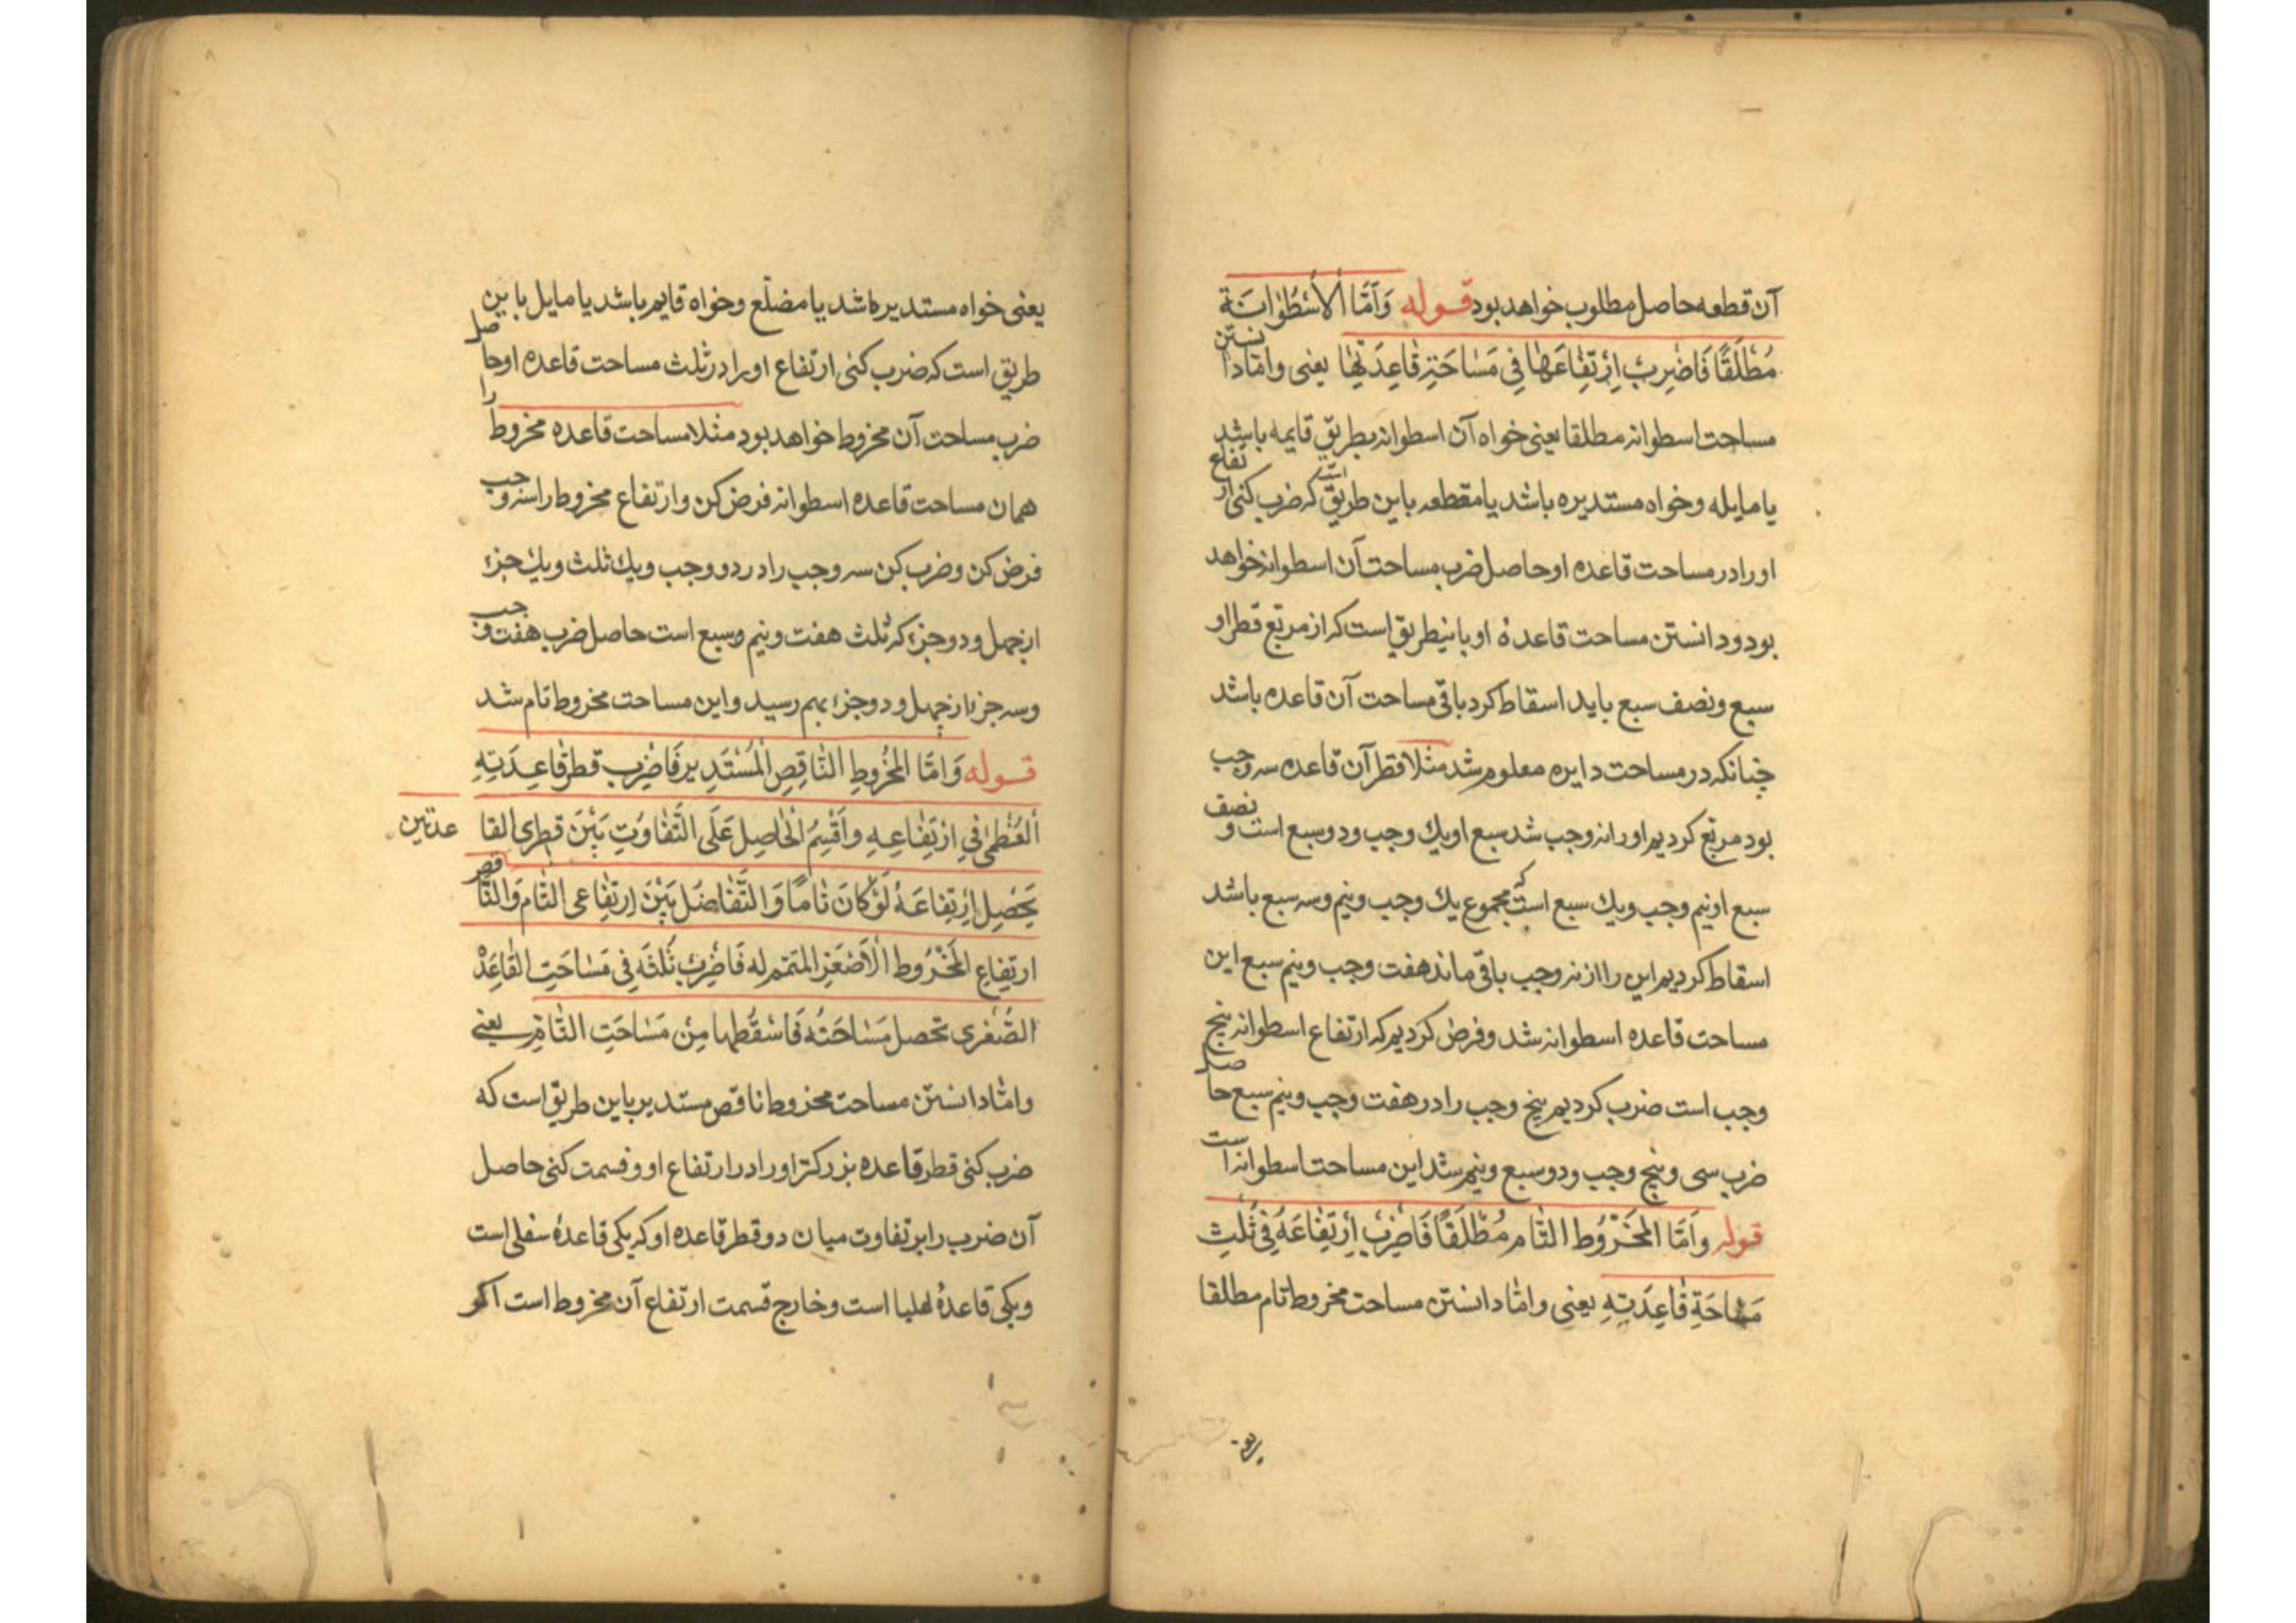 آن قطعه حاصل مطلوب خواهد بود قوله وَاَمَّا الْاُسْطُوٰانَة
مُطْلَقًا فَاضْرِبْ اِرْتِفٰاعَهٰا فِی مَسٰاحَةِ قٰاعِدَتِهٰا یعنی واما دانستن
مساحت اسطوانه مطلقا یعنی خواه آن اسطوانه بطریق قایمه باشد
یا مایله و خواه مستدیره باشد یا مقطعه باین طریق است که ضرب کنی ارتفاع
او را در مساحت قاعده او حاصل ضرب مساحت آن اسطوانه خواهد
بود و دانستن مساحت قاعدهٔ او باینطریق است که از مربّع قطر او
سبع و نصف سبع باید اسقاط کرد باقی مساحت آن قاعده باشد
چنانکه در مساحت دایره معلوم شد مثلا قطر آن قاعده سه وجب
بود مربّع کردیم او را نه وجب شد سبع او یك وجب و دو سبع است و نصف
سبع او نیم وجب و یك سبع است که مجموع یك وجب و نیم و سه سبع باشد
اسقاط کردیم این را از نه وجب باقی ماند هفت وجب و نیم سبع این
مساحت قاعده اسطوانه شد و فرض کردیم که ارتفاع اسطوانه پنج
وجب است ضرب کردیم پنج وجب را در هفت وجب و نیم سبع حاصل
ضرب سی و پنج وجب و دو سبع و نیم شد این مساحت اسطوانه است
قوله وَاَمَّا المَخْرُوط التّٰام مُطْلَقًا فَاضْرِبْ اِرْتِفٰاعَهُ فِی ثُلْثِ
مَسٰاحَةِ قٰاعِدَتِهِ یعنی و امّا دانستن مساحت مخروط تام مطلقا
یعنی
یعنی خواه مستدیر باشد یا مضلّع و خواه قایم باشد یا مایل باین
طریق است که ضرب کنی ارتفاع او را در ثلث مساحت قاعده او حاصل
ضرب مساحت آن مخروط خواهد بود مثلا مساحت قاعده مخروط را
همان مساحت قاعده اسطوانه فرض کن و ارتفاع مخروط را سه وجب
فرض کن و ضرب کن سه وجب را در دو وجب و یك ثلث و یك جزء
از چهل و دو جزء که ثلث هفت و نیم و سبع است حاصل ضرب هفت وجب
و سه جزء از چهل و دو جزء بهم رسید و این مساحت مخروط تام شد
قوله وَاَمَّا المَخْرُوطِ النّٰاقِصِ الْمُسْتَدِیر فَاضْرِب قطر قٰاعِدَتِهِ
اَلعُظْمیٰ فِی اِرْتِفٰاعِهِ وَاَقْسِمُ الْحٰاصِل عَلَی التَّفٰاوُتِ بَیْنَ قطری القا عدتین
یَحْصِل اِرْتِفٰاعَهُ لَوْ کانَ تٰامًا وَ التَّفٰاضُل بَیْنَ اِرتِفٰاعی التّٰام وَالنّٰاقص
ارتِفٰاعِ المَخْرُوط الْاَصْغَرِ المتمّم له فَاضْرِبْ ثُلثَه فِی مَسٰاحَتِ القٰاعِدَة
الصُّغْری تحصل مَسٰاحَتُه فَاسْقُطْها مِنْ مَسٰاحَتِ التّٰامِّ یعنی
و امّا دانستن مساحت مخروط ناقص مستدیر باین طریق است که
ضرب کنی قطر قاعده بزرکتر او را در ارتفاع او و قسمت کنی حاصل
آن ضرب را بر تفاوت میان دو قطر قاعده او که یکی قاعدهٔ سفلی است
و یکی قاعدهٔ علیا است و خارج قسمت ارتفاع آن مخروط است اکر